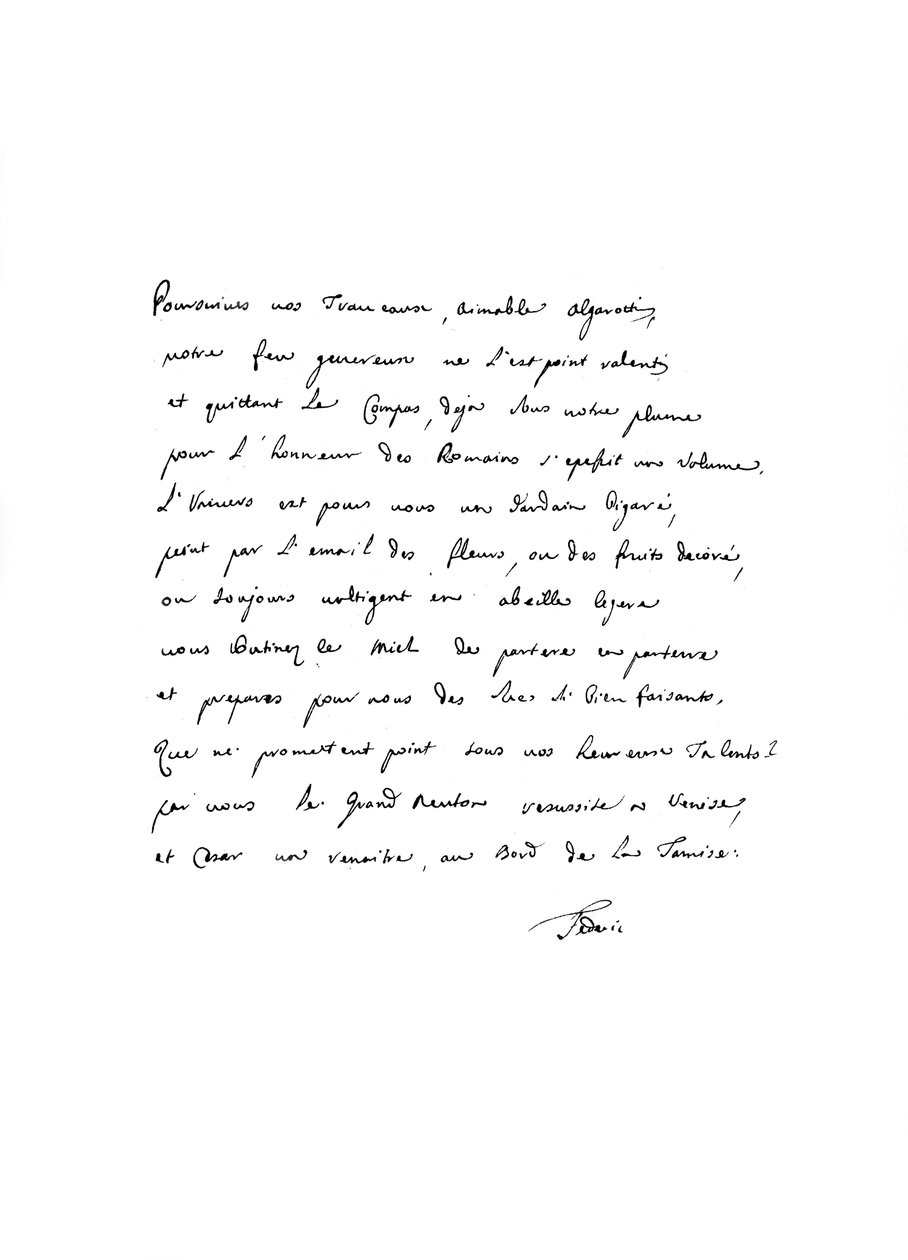 Poursuives vos Traveaux, aimable Algarotti,
votre feu genereux ne s'est point ralenti
et quittant le Compas, deja sous votre plume
pour L'honneur des Romains s'epessit un Volume.
L'Univers est pour vous un Jardain Bigaré,
peint par L'email des fleurs, ou des fruits decoré,
ou toujours voltigent en abeille legere
vous Butinez le Miel de partere en parterre
et prepares pour nous des sucs si Bien faisants.
Que ne promettent point tous vos heureux Talents?
par vous le grand Neuton resussite a Venise,
et Cesar va renaitre, au Bord de La Tamise.
Federic